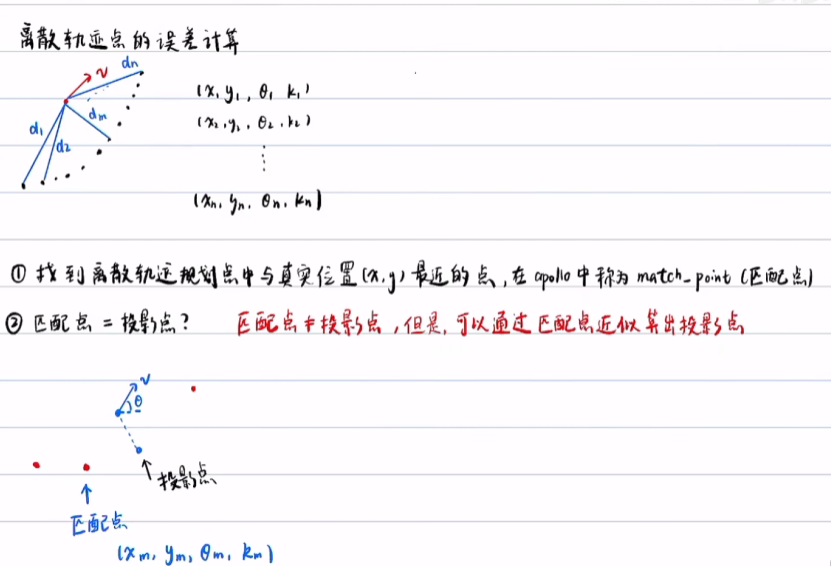 离散轨迹点的误差计算
v dn
(x₁ y₁, θ₁ k₁)
dm
d₁
(x₂, y₂, θ₂, k₂)
d₂
⋮
(xn, yn, θn, kn)
① 找到离散轨迹规划点中与真实位置(x,y)最近的点,在apollo中称为match_point(匹配点)
② 匹配点 = 投影点? 匹配点≠投影点,但是,可以通过匹配点近似算出投影点
v
θ
↑投影点
↑
匹配点
(xm, ym, θm, km)